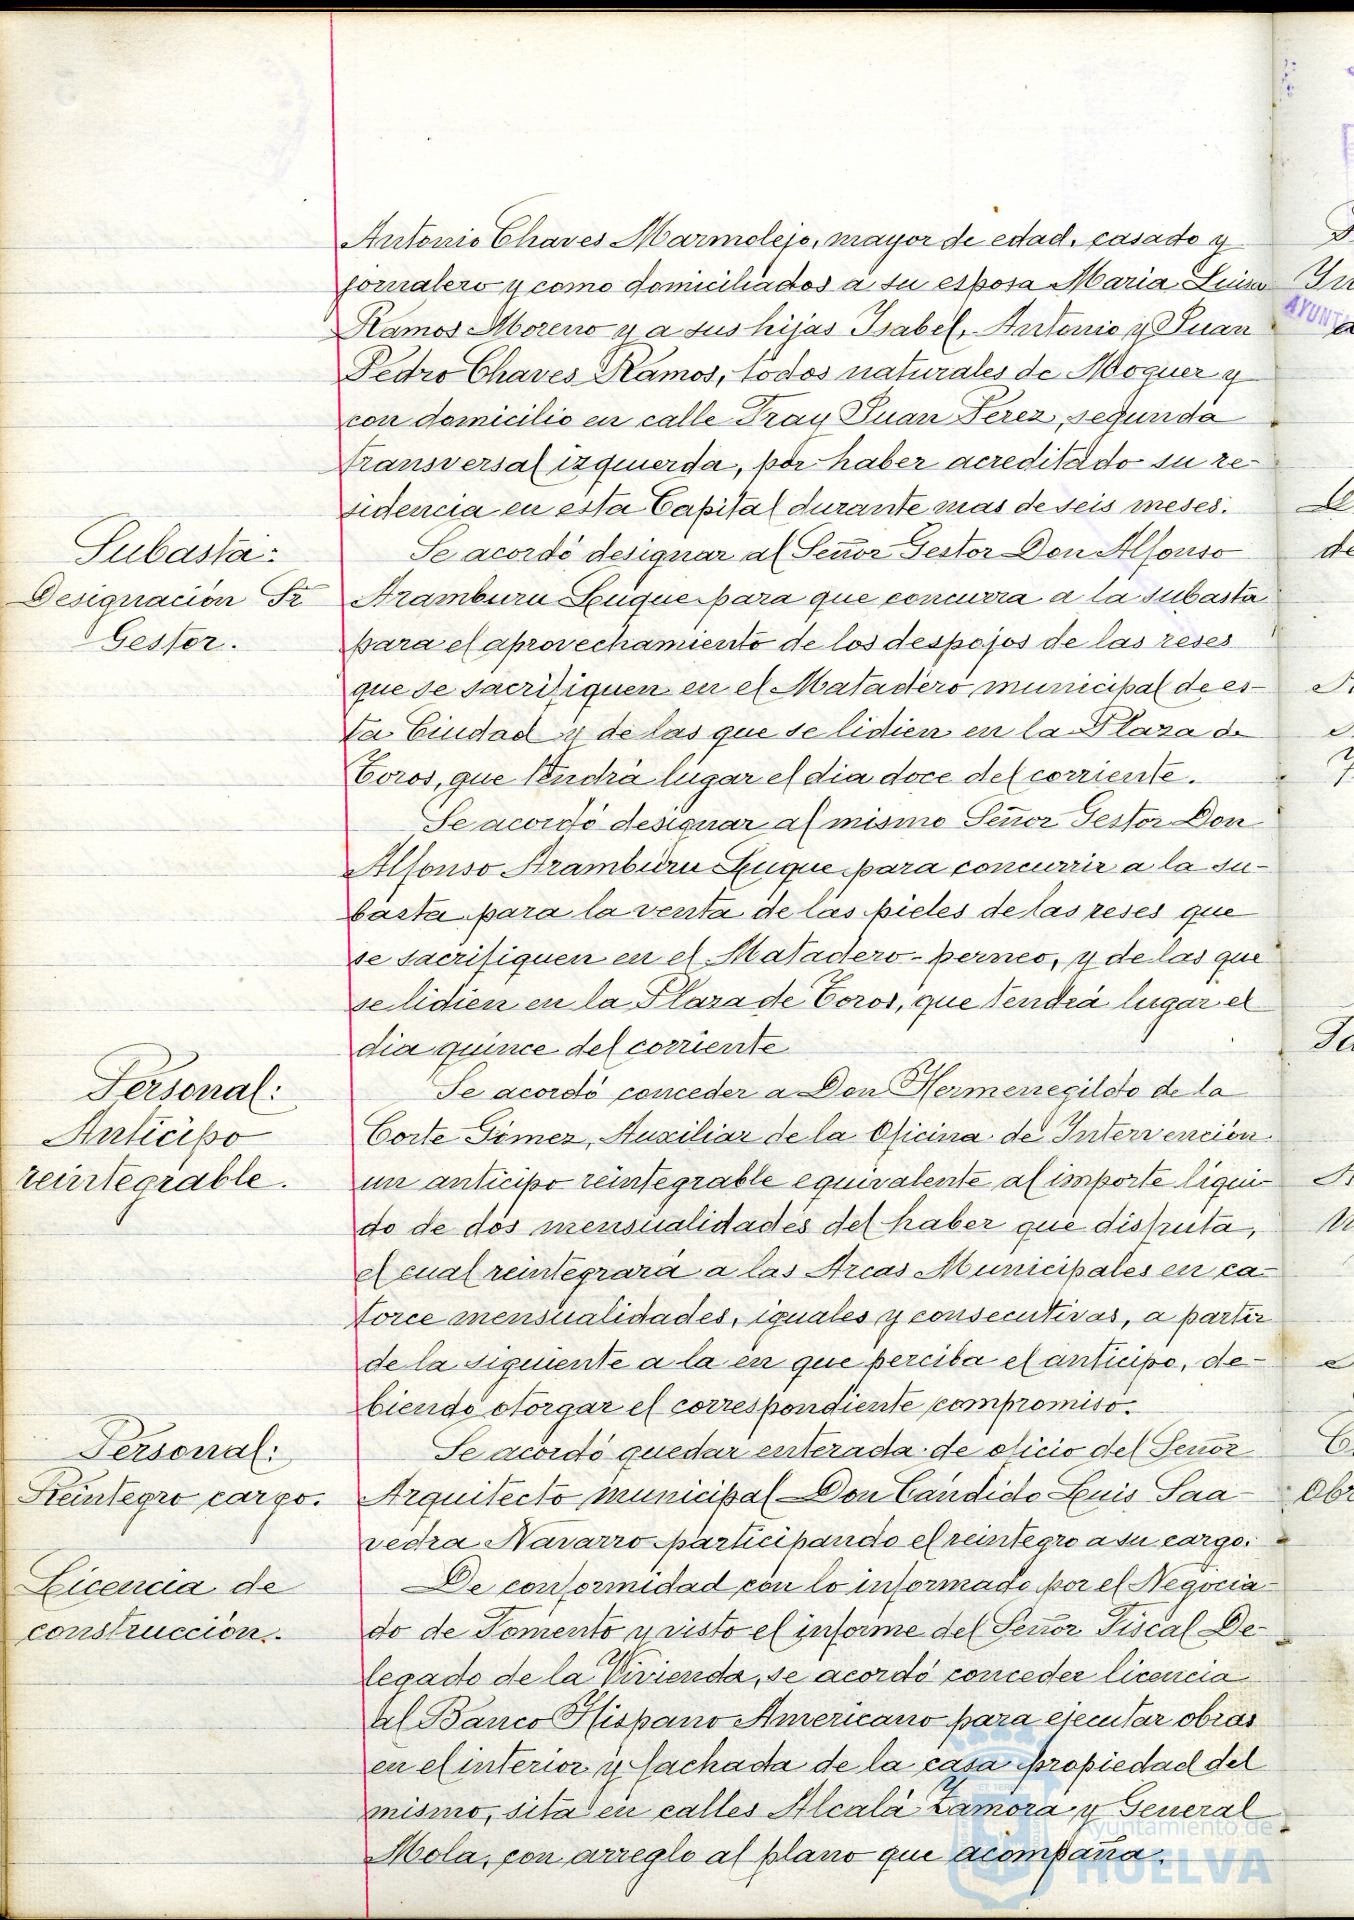 Antonio Chaves Marmolejo, mayor de edad, casado y
jornalero y como domiciliados a su esposa Maria Luisa
Ramos Moreno y a sus hijas Isabel, Antonio y Juan
Pedro Chaves Ramos, todos naturales de Moguer y
con domicilio en calle Fray Juan Perez, segunda
transversal izquierda, por haber acreditado su re-
sidencia en esta Capital durante mas de seis meses.
Subasta:
Designación Sr
Gestor.
Se acordó designar al Señor Gestor Don Alfonso
Aramburu Luque para que concurra a la subasta
para el aprovechamiento de los despojos de las reses
que se sacrifiquen en el Matadero municipal de es-
ta Ciudad y de las que se lidien en la Plaza de
Toros, que tendrá lugar el dia doce del corriente.
Se acordó designar al mismo Señor Gestor Don
Alfonso Aramburu Luque para concurrir a la su-
basta para la venta de las pieles de las reses que
se sacrifiquen en el Matadero-perneo, y de las que
se lidien en la Plaza de Toros, que tendrá lugar el
dia quince del corriente
Personal:
Anticipo
reintegrable.
Se acordó conceder a Don Hermenegildo de la
Corte Gómez, Auxiliar de la Oficina de Intervención
un anticipo reintegrable equivalente al importe líqui-
do de dos mensualidades del haber que disfruta,
el cual reintegrará a las Arcas Municipales en ca-
torce mensualidades, iguales y consecutivas, a partir
de la siguiente a la en que perciba el anticipo, de-
biendo otorgar el correspondiente compromiso.
Personal:
Reintegro cargo.
Se acordó quedar enterada de oficio del Señor
Arquitecto municipal Don Cándido Luis Saa-
vedra Navarro participando el reintegro a su cargo.
Licencia de
construcción.
De conformidad con lo informado por el Negocia-
do de Fomento y visto el informe del Señor Fiscal De-
legado de la Vivienda, se acordó conceder licencia
al Banco Hispano Americano para ejecutar obras
en el interior y fachada de la casa propiedad del
mismo, sita en calles Alcalá Zamora y General
Mola, con arreglo al plano que acompaña.
Ayuntamiento de
HUELVA